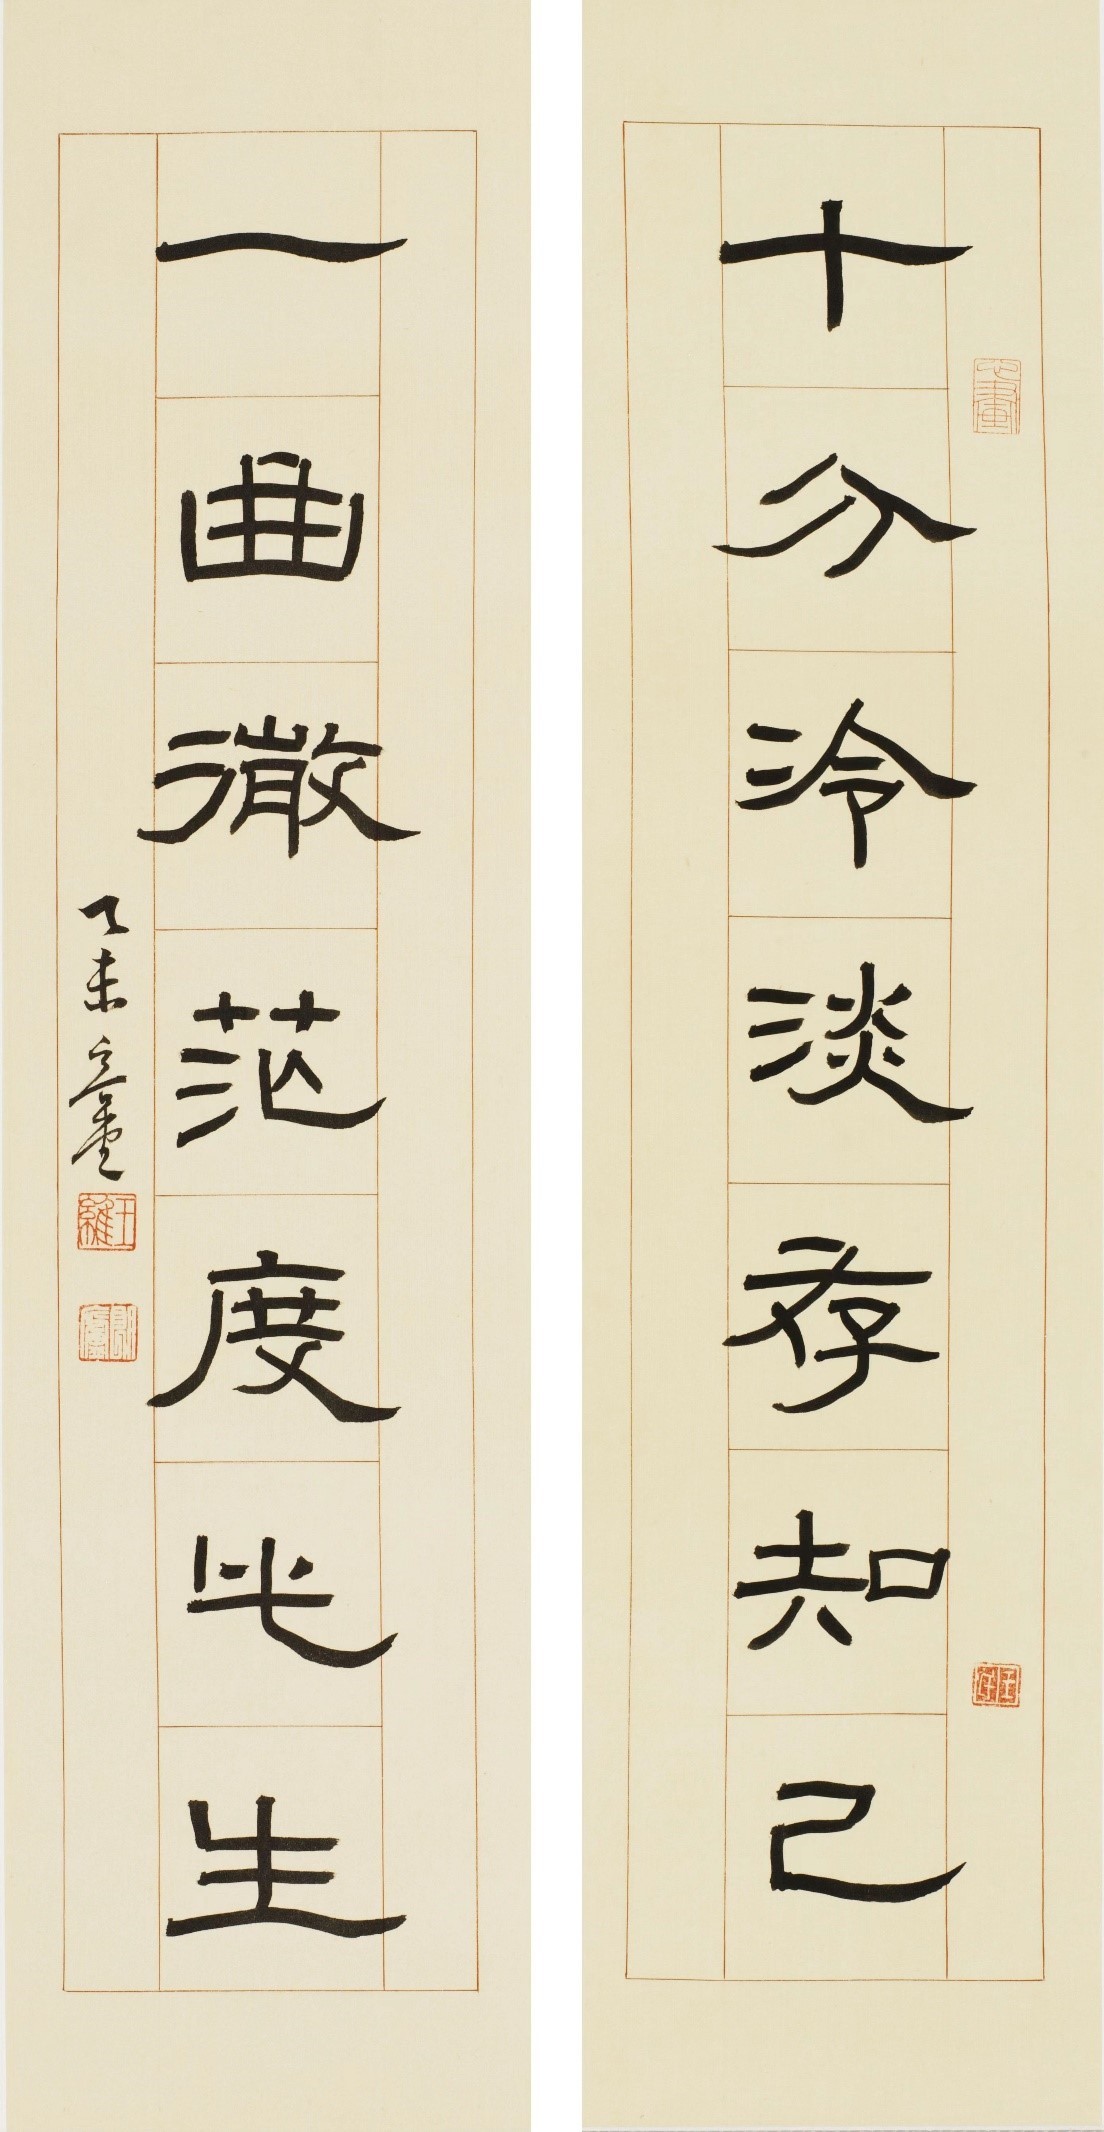 十分冷淡存知己
一曲微茫度此生
乙未